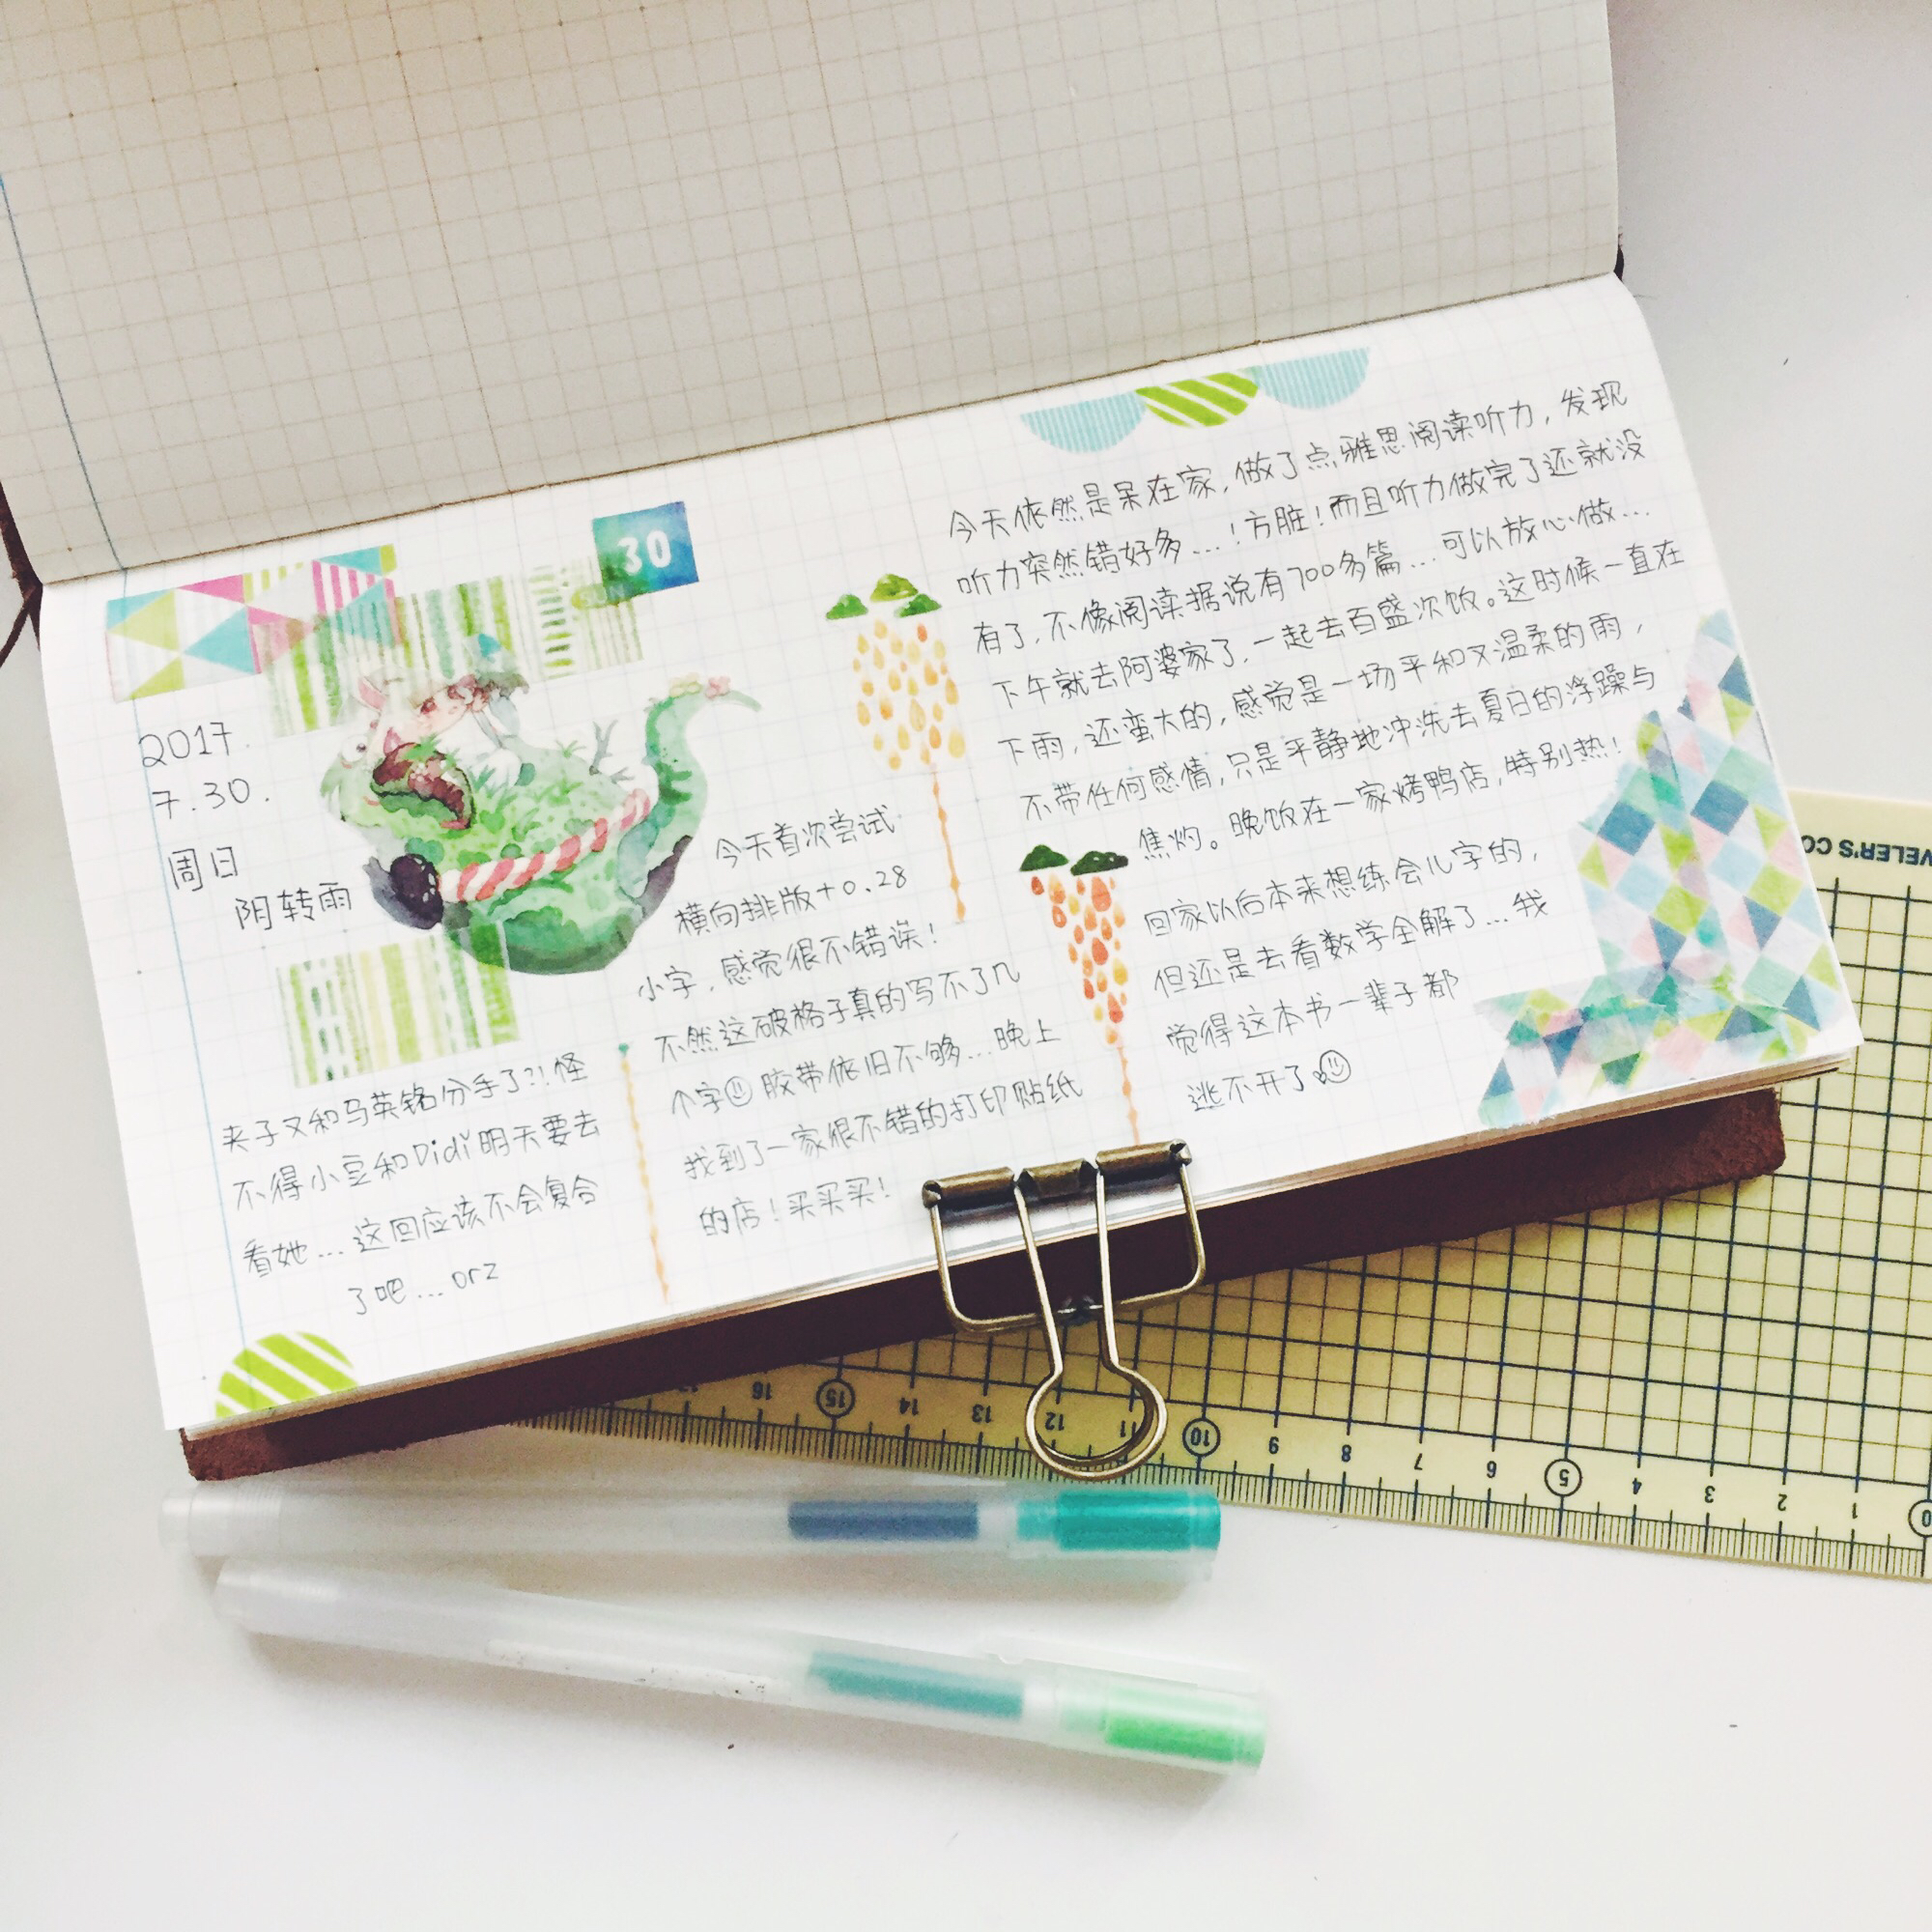 30
2017.
7.30.
周日
阴转雨
夹子又和马英铭分手了?!怪
不得小豆和Didi明天要去
看她...这回应该不会复合
了吧...orz
今天首次尝试
横向排版+0.28
小字,感觉很不错诶!
不然这破格子真的写不了几
个字 胶带依旧不够...晚上
找到了一家很不错的打印贴纸
的店!买买买!
今天依然是呆在家,做了点雅思阅读听力,发现
听力突然错好多...!方脏!而且听力做完了还就没
有了,不像阅读据说有700多篇...可以放心做...
下午就去阿婆家了,一起去百盛次饭。这时候一直在
下雨,还蛮大的,感觉是一场平和又温柔的雨,
不带任何感情,只是平静地冲洗去夏日的浮躁与
焦灼。晚饭在一家烤鸭店,特别热!
回家以后本来想练会儿字的,
但还是去看数学全解了...我
觉得这本书一辈子都
逃不开了。
VELER'S CO
17 16 15 14 13 12 11 10 9 8 7 6 5 4 3 2 1 0